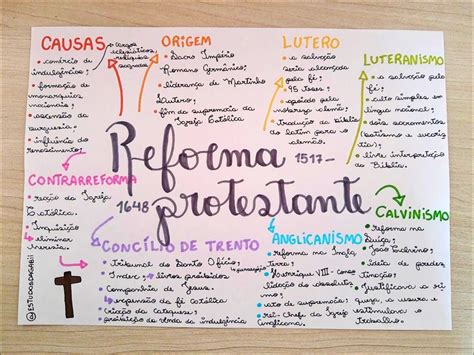 CAUSAS
• comércio de
indulgências;
• formação de
monarquias
nacionais;
• ascensão da
burguesia;
• influência do
renascimento;
cargos
eclesiásticos,
relíquias
sagradas
ORIGEM
• Sacro Império
Romano Germânico;
• liderança de Martinho
Lutero;
• fim da supremacia da
Igreja Católica
LUTERO
• a salvação
seria alcançada
pela fé;
• 95 teses;
• apoiado pela
nobreza alemã;
• tradução da Bíblia
do latim para o
alemão.
LUTERANISMO
• a salvação pela
fé;
• culto simples em
língua nacional;
• dois sacramentos
(batismo e eucaris
tia);
• livre interpretação
da Bíblia.
Reforma
protestante
1517-
1648
CONTRARREFORMA
• reação da Igreja
Católica.
• Inquisição
eliminar
heresias
CONCÍLIO DE TRENTO
• Tribunal do Santo Ofício;
• Index; livros proibidos
• Companhia de Jesus;
expansão da fé católica
• Criação da Catequese;
• proibição da venda da indulgência
ANGLICANISMO
• reforma na Ingla
terra;
• Henrique VIII -
• ato de supremacia:
rei- Chefe da Igreja
Anglicana.
CALVINISMO
• reforma na
Suíça;
• João Calvinho;
• ideia de predes
tinação;
• Justificava a bur
guesia, a usura e
estimulava o
trabalho.
@ESTUDOSDAGABII